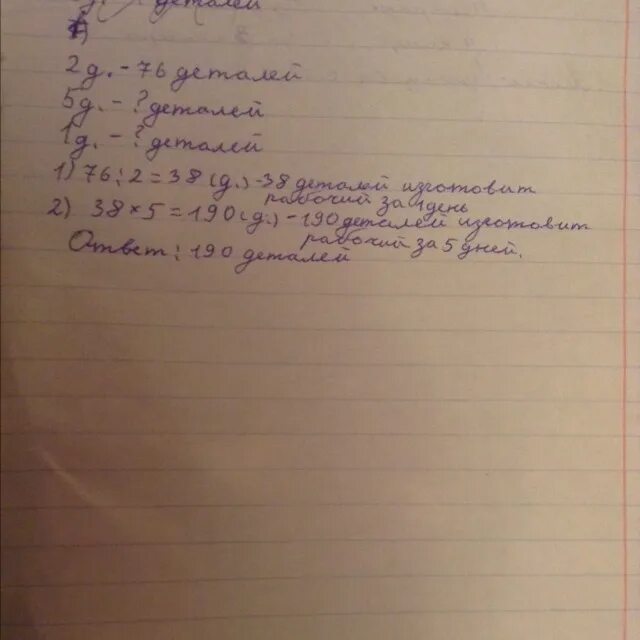 деталей
2д. - 76 деталей
5д. - ? деталей
1д. - ? деталей
1) 76 : 2 = 38 (д.) - 38 деталей изготовит
рабочий за 1 день
2) 38 × 5 = 190 (д.) - 190 деталей изготовит
рабочий за 5 дней.
Ответ : 190 деталей